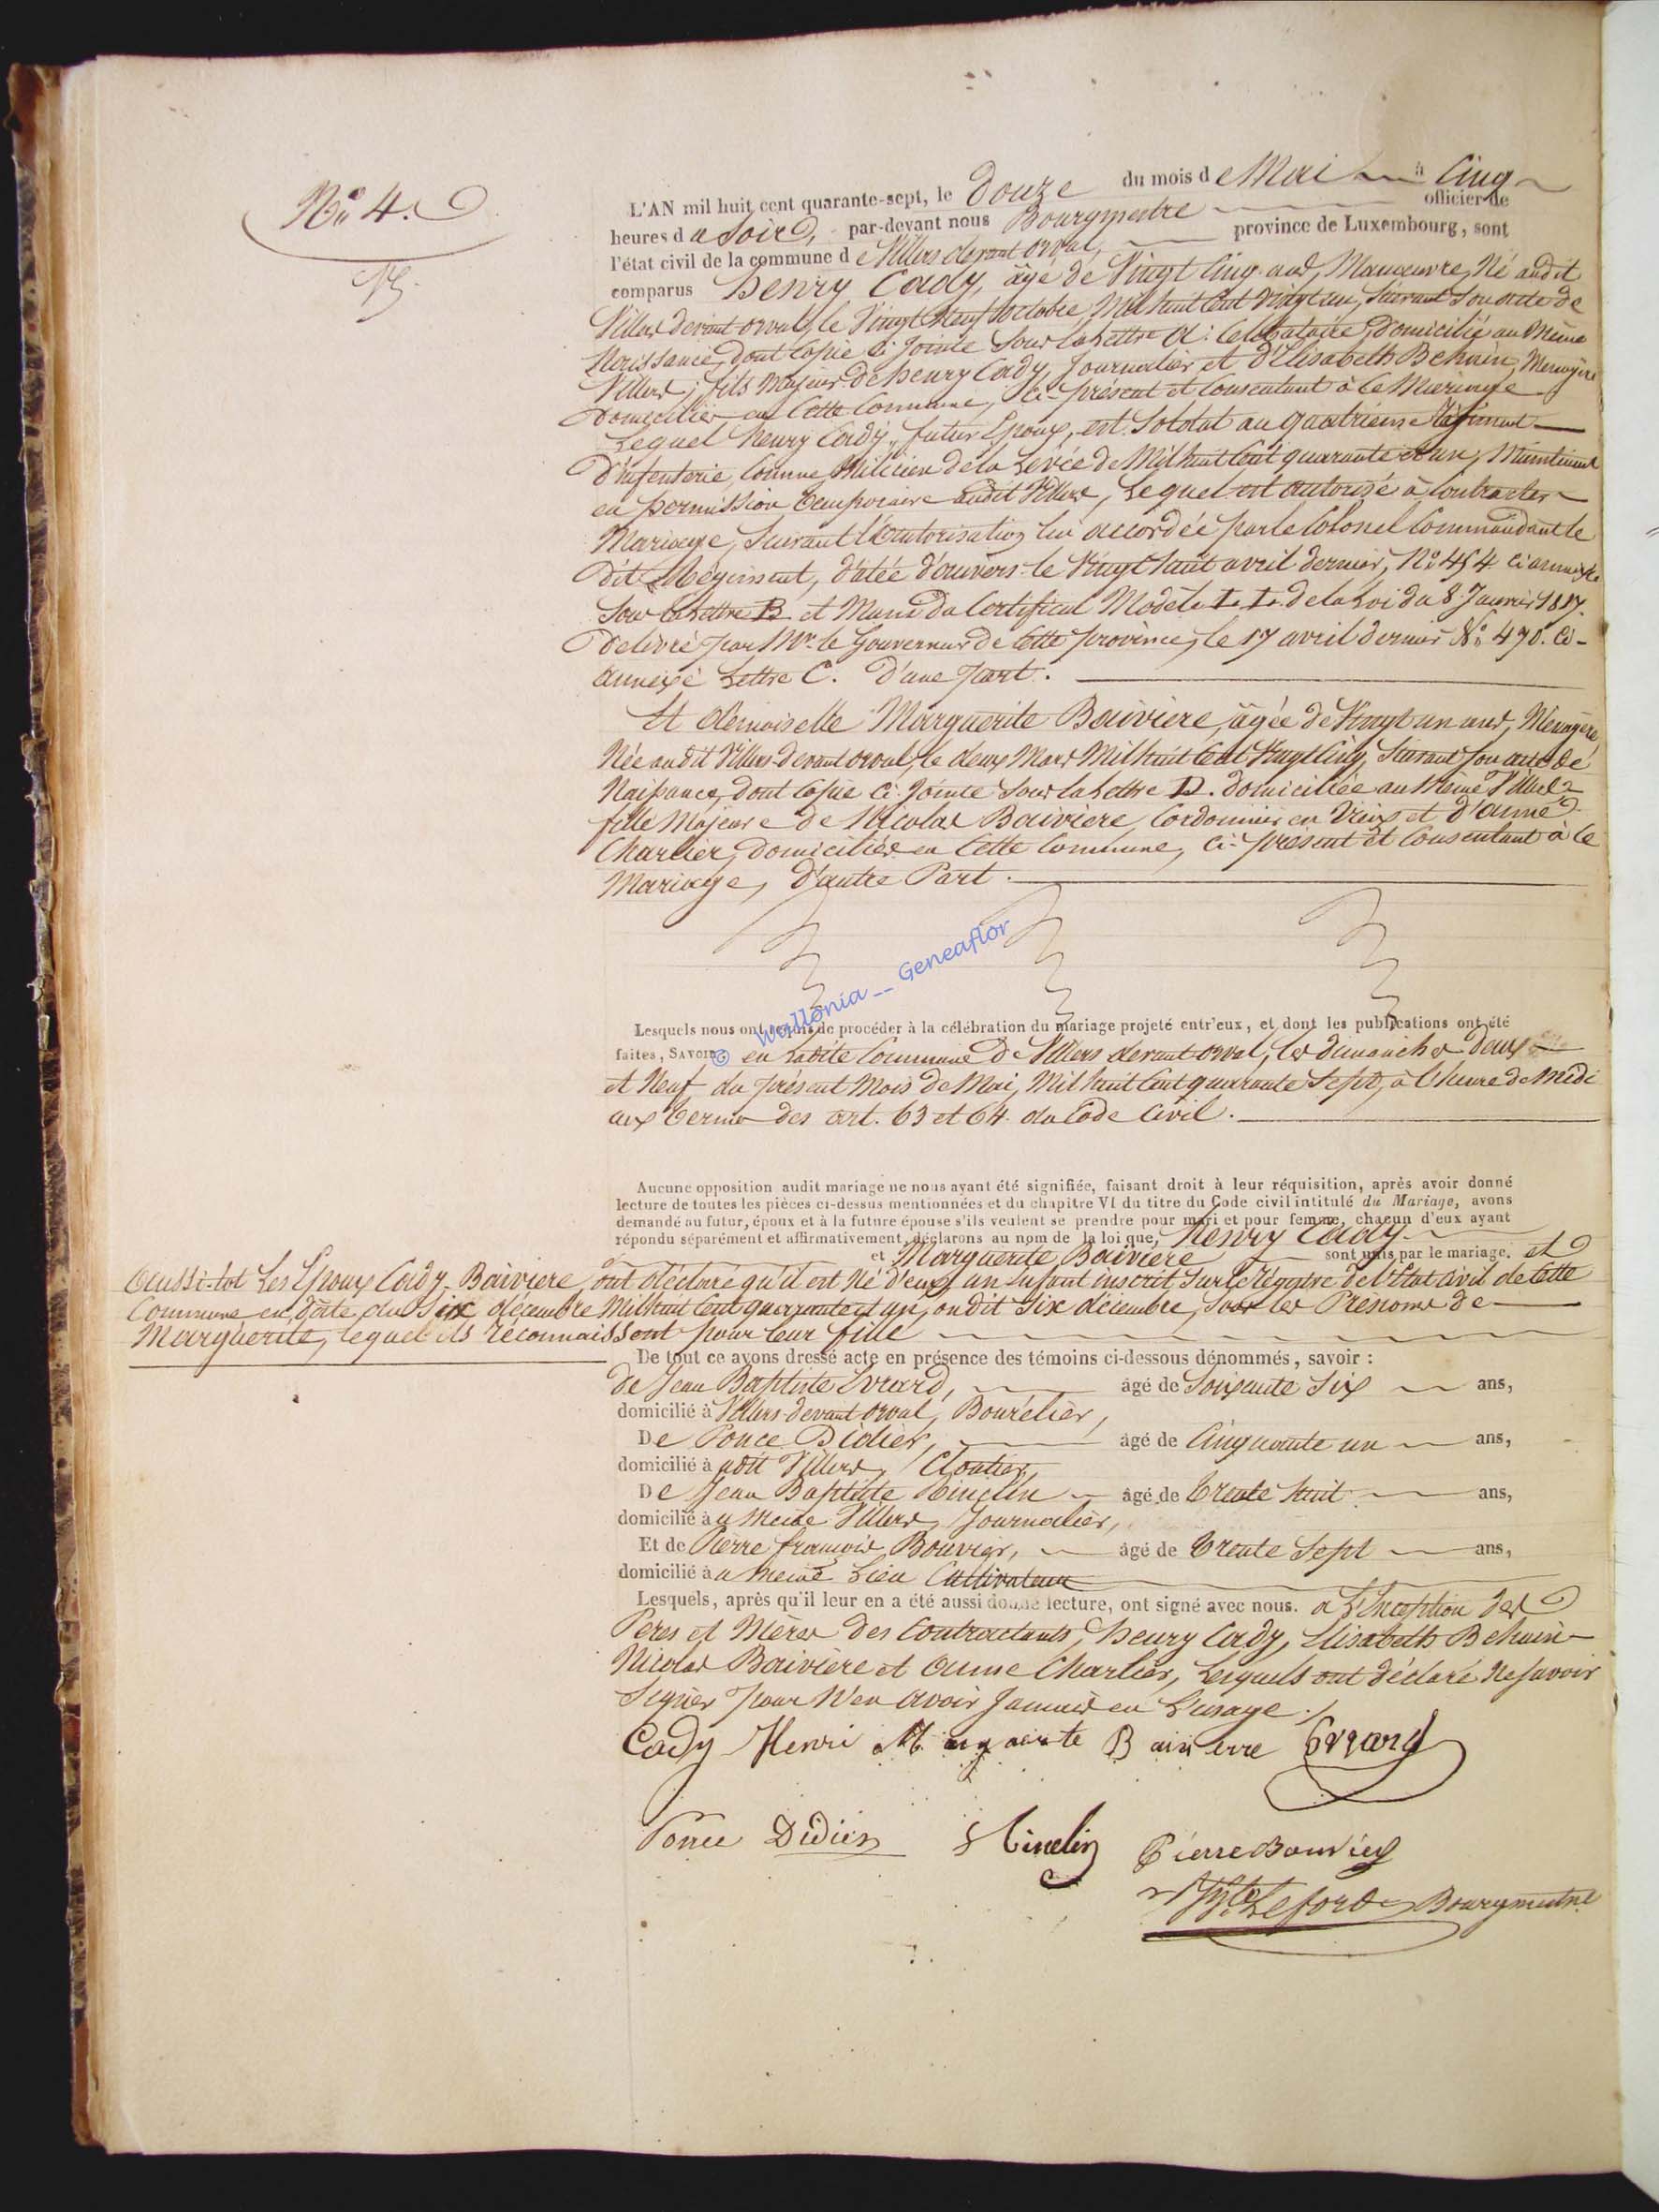 No 4.
L'AN mil huit cent quarante-sept, le Douze du mois de Mai à Cinq
heures du Soir, par-devant nous Bourgmestre officier de
l'état civil de la commune de Villers devant orval, province de Luxembourg, sont
comparus henry Cady, âgé de Vingt Cinq ans, Manœuvre, Né audit
Villers devant orval, le Vingt Neuf Octobre, Mil huit Cent Vingt un, Suivant Son acte de
Naissance, dont Copie Ci Jointe Sous la Lettre A: Célibataire, domicilié au Même
Villers, fils Majeur de henry Cady, Journalier et d'Elisabeth Behuin, Menagère
Domiciliés en Cette Commune, Ci-présent et Consentant à Ce Mariage
Lequel henry Cady, futur Epoux, est Soldat au quatrieme Régiment
D'infenterie, Comme Milicien de la Levée de Mil huit Cent quarante et un, Maintenant
en permission temporaire audit Villers, Lequel est autorisé à Contracter
Mariage, Suivant l'autorisation lui accordée par le Colonel Commandant le
dit Régiment, datée d'anvers le Vingt huit avril dernier, No 454 Ci annexée
Sous la Lettre B et Muni du Certificat Modèle L. L. de la Loi du 8 Janvier 1817.
Delivré par Mr le Gouverneur de Cette province, le 17 avril dernier No 470. Ci-
annexé Lettre C. D'une Part.
Et demoiselle Marguerite Baiviere, âgée de Vingt un ans, Menagère,
Née audit Villers devant orval, le deux Mars Mil huit Cent Vingt Cinq, Suivant Son acte de
Naissance, dont Copie Ci Jointe Sous la Lettre D. domiciliée au Même Villers
fille Majeure de Nicolas Baiviere Cordonnier en Vieux et d'anne
Charlier, domiciliés en Cette Commune, Ci-présent et Consentant à Ce
Mariage, D'autre Part.
© Wallonia__Geneaflor
Lesquels nous ont requis de procéder à la célébration du mariage projeté entr'eux, et dont les publications ont été
faites, SAVOIR: en Ladite Commune De Villers devant orval, les dimanches Deux
et Neuf du présent Mois de Mai, Mil huit Cent quarante Sept, à l'heure de Midi
aux termes des art. 63 et 64 du Code Civil.
Aucune opposition audit mariage ne nous ayant été signifiée, faisant droit à leur réquisition, après avoir donné
lecture de toutes les pièces ci-dessus mentionnées et du chapitre VI du titre du Code civil intitulé du Mariage, avons
demandé au futur, époux et à la future épouse s'ils veulent se prendre pour mari et pour femme, chacun d'eux ayant
répondu séparément et affirmativement, déclarons au nom de la loi que, Henry Cady
et Marguerite Baiviere sont unis par le mariage. et
Aussi-tot Les Epoux Cady-Baiviere ont déclaré qu'il est Né d'eux un Enfant inscrit Sur le Régistre de l'Etat Civil de Cette
Commune en date du Six décembre Mil huit Cent quarante et un, ou dit Six décembre, Sous les Prénoms de
Marguerite, lequel ils reconnaissent pour leur fille
De tout ce avons dressé acte en présence des témoins ci-dessous dénommés, savoir :
de Jean Baptiste Evrard, âgé de Soixante Six ans,
domicilié à Villers devant orval, Bourélier,
De Ponce Didier, âgé de Cinquante un ans,
domicilié à udit Villers, Cloutier,
De Jean Baptiste Tinclin âgé de trente huit ans,
domicilié à u Meme Villers, Journalier,
Et de Pierre françois Bouvier, âgé de trente Sept ans,
domicilié à u Meme Lieu Cultivateur
Lesquels, après qu'il leur en a été aussi donné lecture, ont signé avec nous. à L'Exception des
Peres et Mères des Contractants, henry Cady, Elisabeth Behuin
Nicolas Baiviere et anne Charlier, Lesquels ont déclaré Ne Savoir
Signer pour N'en avoir Jamais eu L'usage.
Cady Henri Marguerite Baivierre Evrard
Ponce Didier Tinclin Pierre Bouvier
Leford Bourgmestre